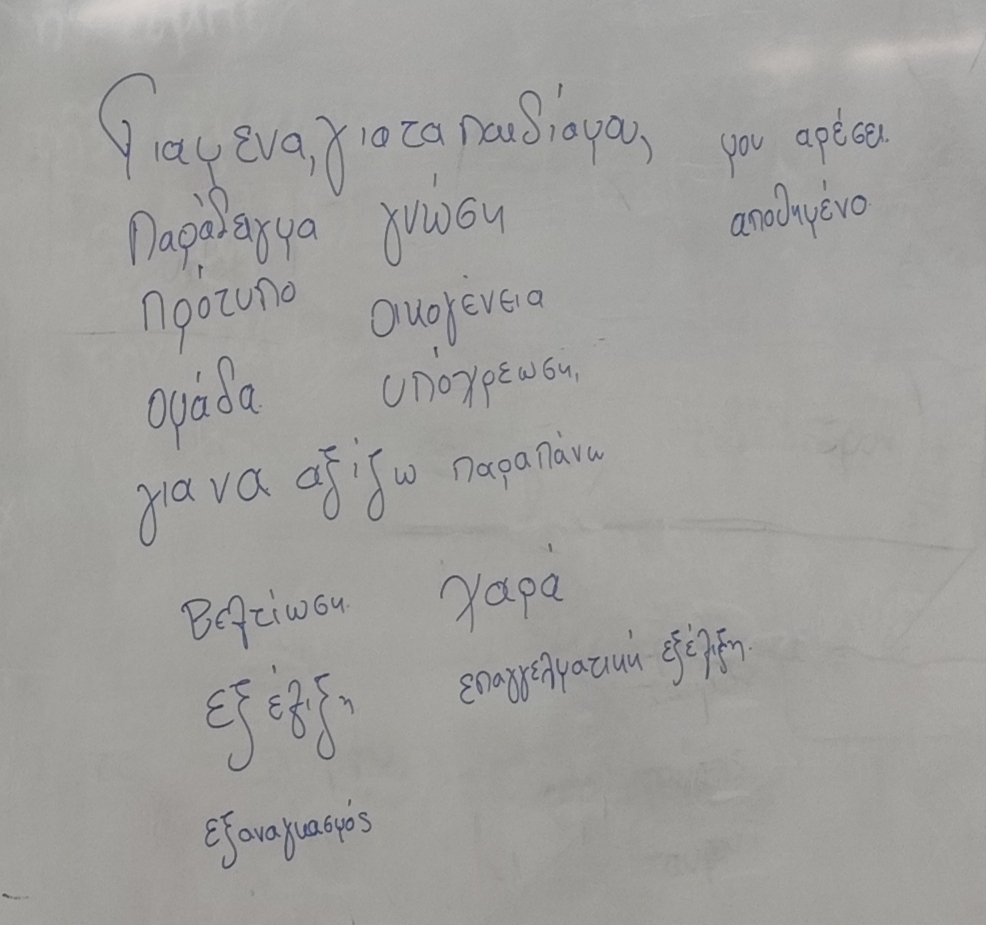 Για μένα, για τα παιδιά μου, μου αρέσει.
Παράδειγμα γνώση αποθημένο
Πρότυπο οικογένεια
ομάδα υπόχρεωση,
για να αξίζω παραπάνω
Βελτίωση. χαρά
εξέλιξη επαγγελματική εξέλιξη.
εξαναγκασμός